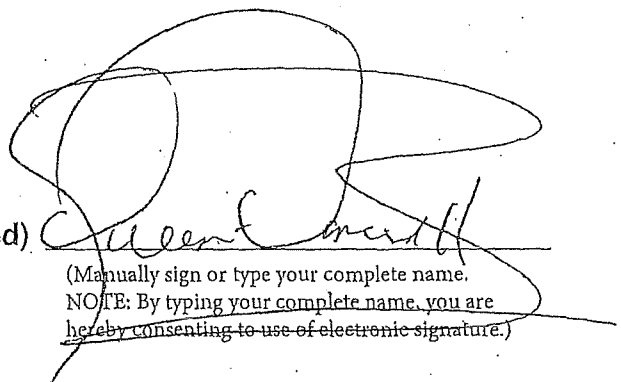 ed)
(Manually sign or type your complete name.
NOTE: By typing your complete name, you are
hereby consenting to use of electronic signature.)